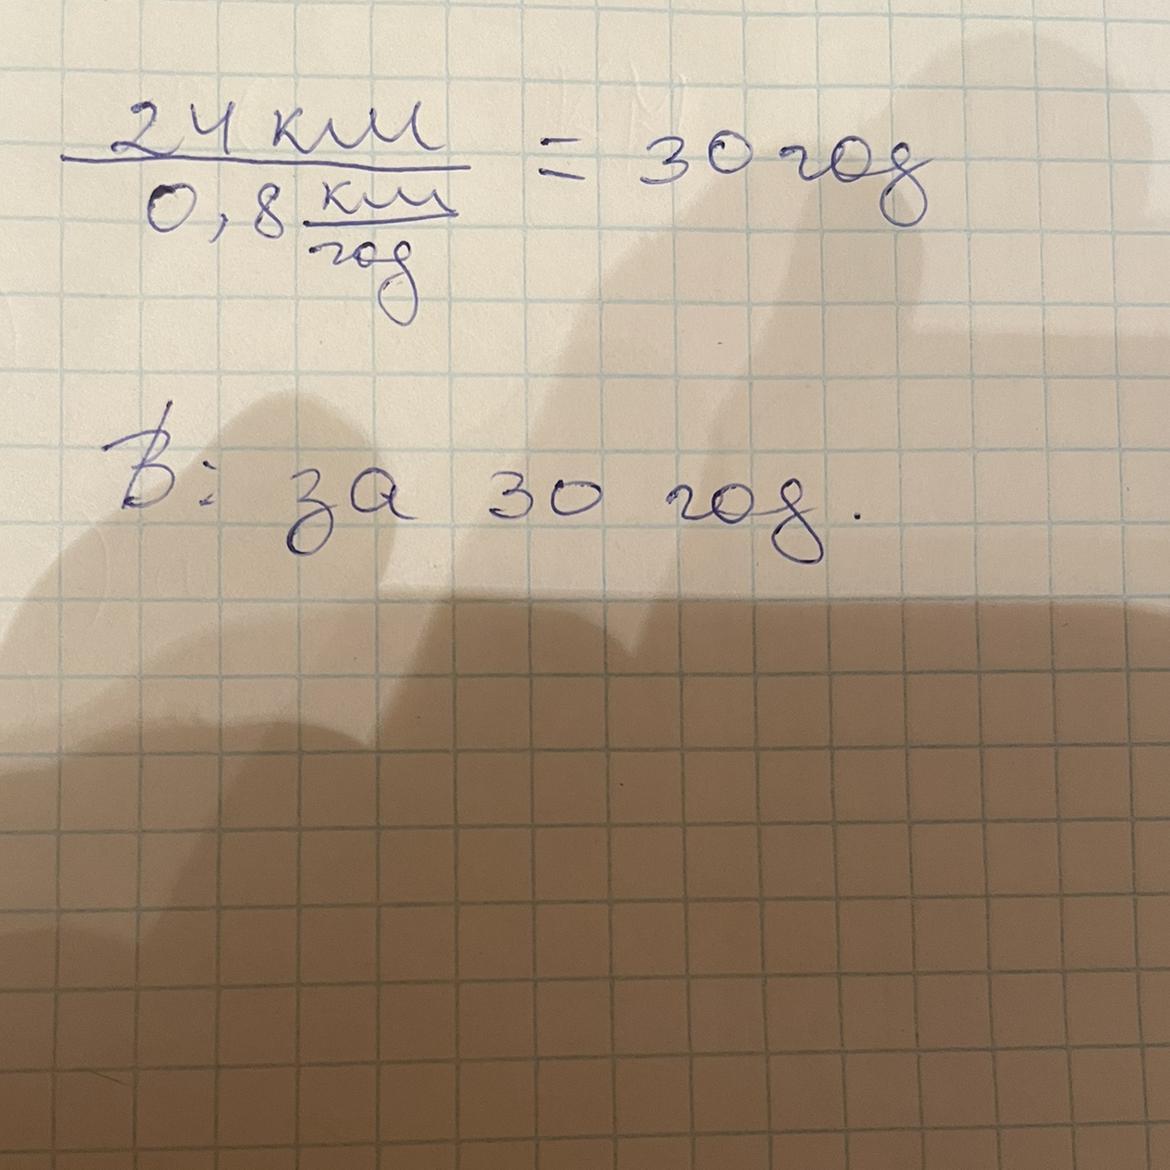 24 км
0,8 км/год = 30 год
В: за 30 год.